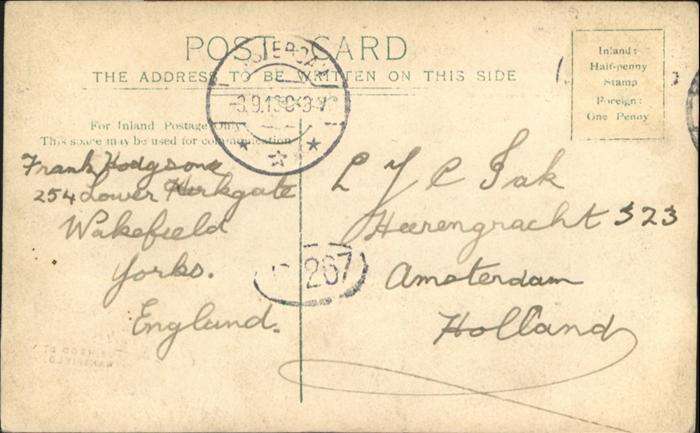 POST CARD
THE ADDRESS TO BE WRITTEN ON THIS SIDE
Inland:
Half-penny
Stamp
Foreign:
One Penny
For Inland Postage Only
This space may be used for communication
Frank Hodgson
254 Lower Kirkgate
Wakefield
Yorks.
England.
L Y C Jak
Heerengracht 523
Amsterdam
Holland
267